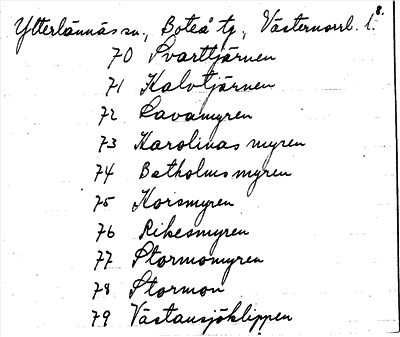 8.
Ytterlännäs sn., Boteå tg., Västernorrl. l.
70 Svarttjärnen
71 Kalvtjärnen
72 Lavamyren
73 Karolinas myren
74 Batholms myren
75 Korsmyren
76 Rikesmyren
77 Stormomyren
78 Stormon
79 Västansjöklippen